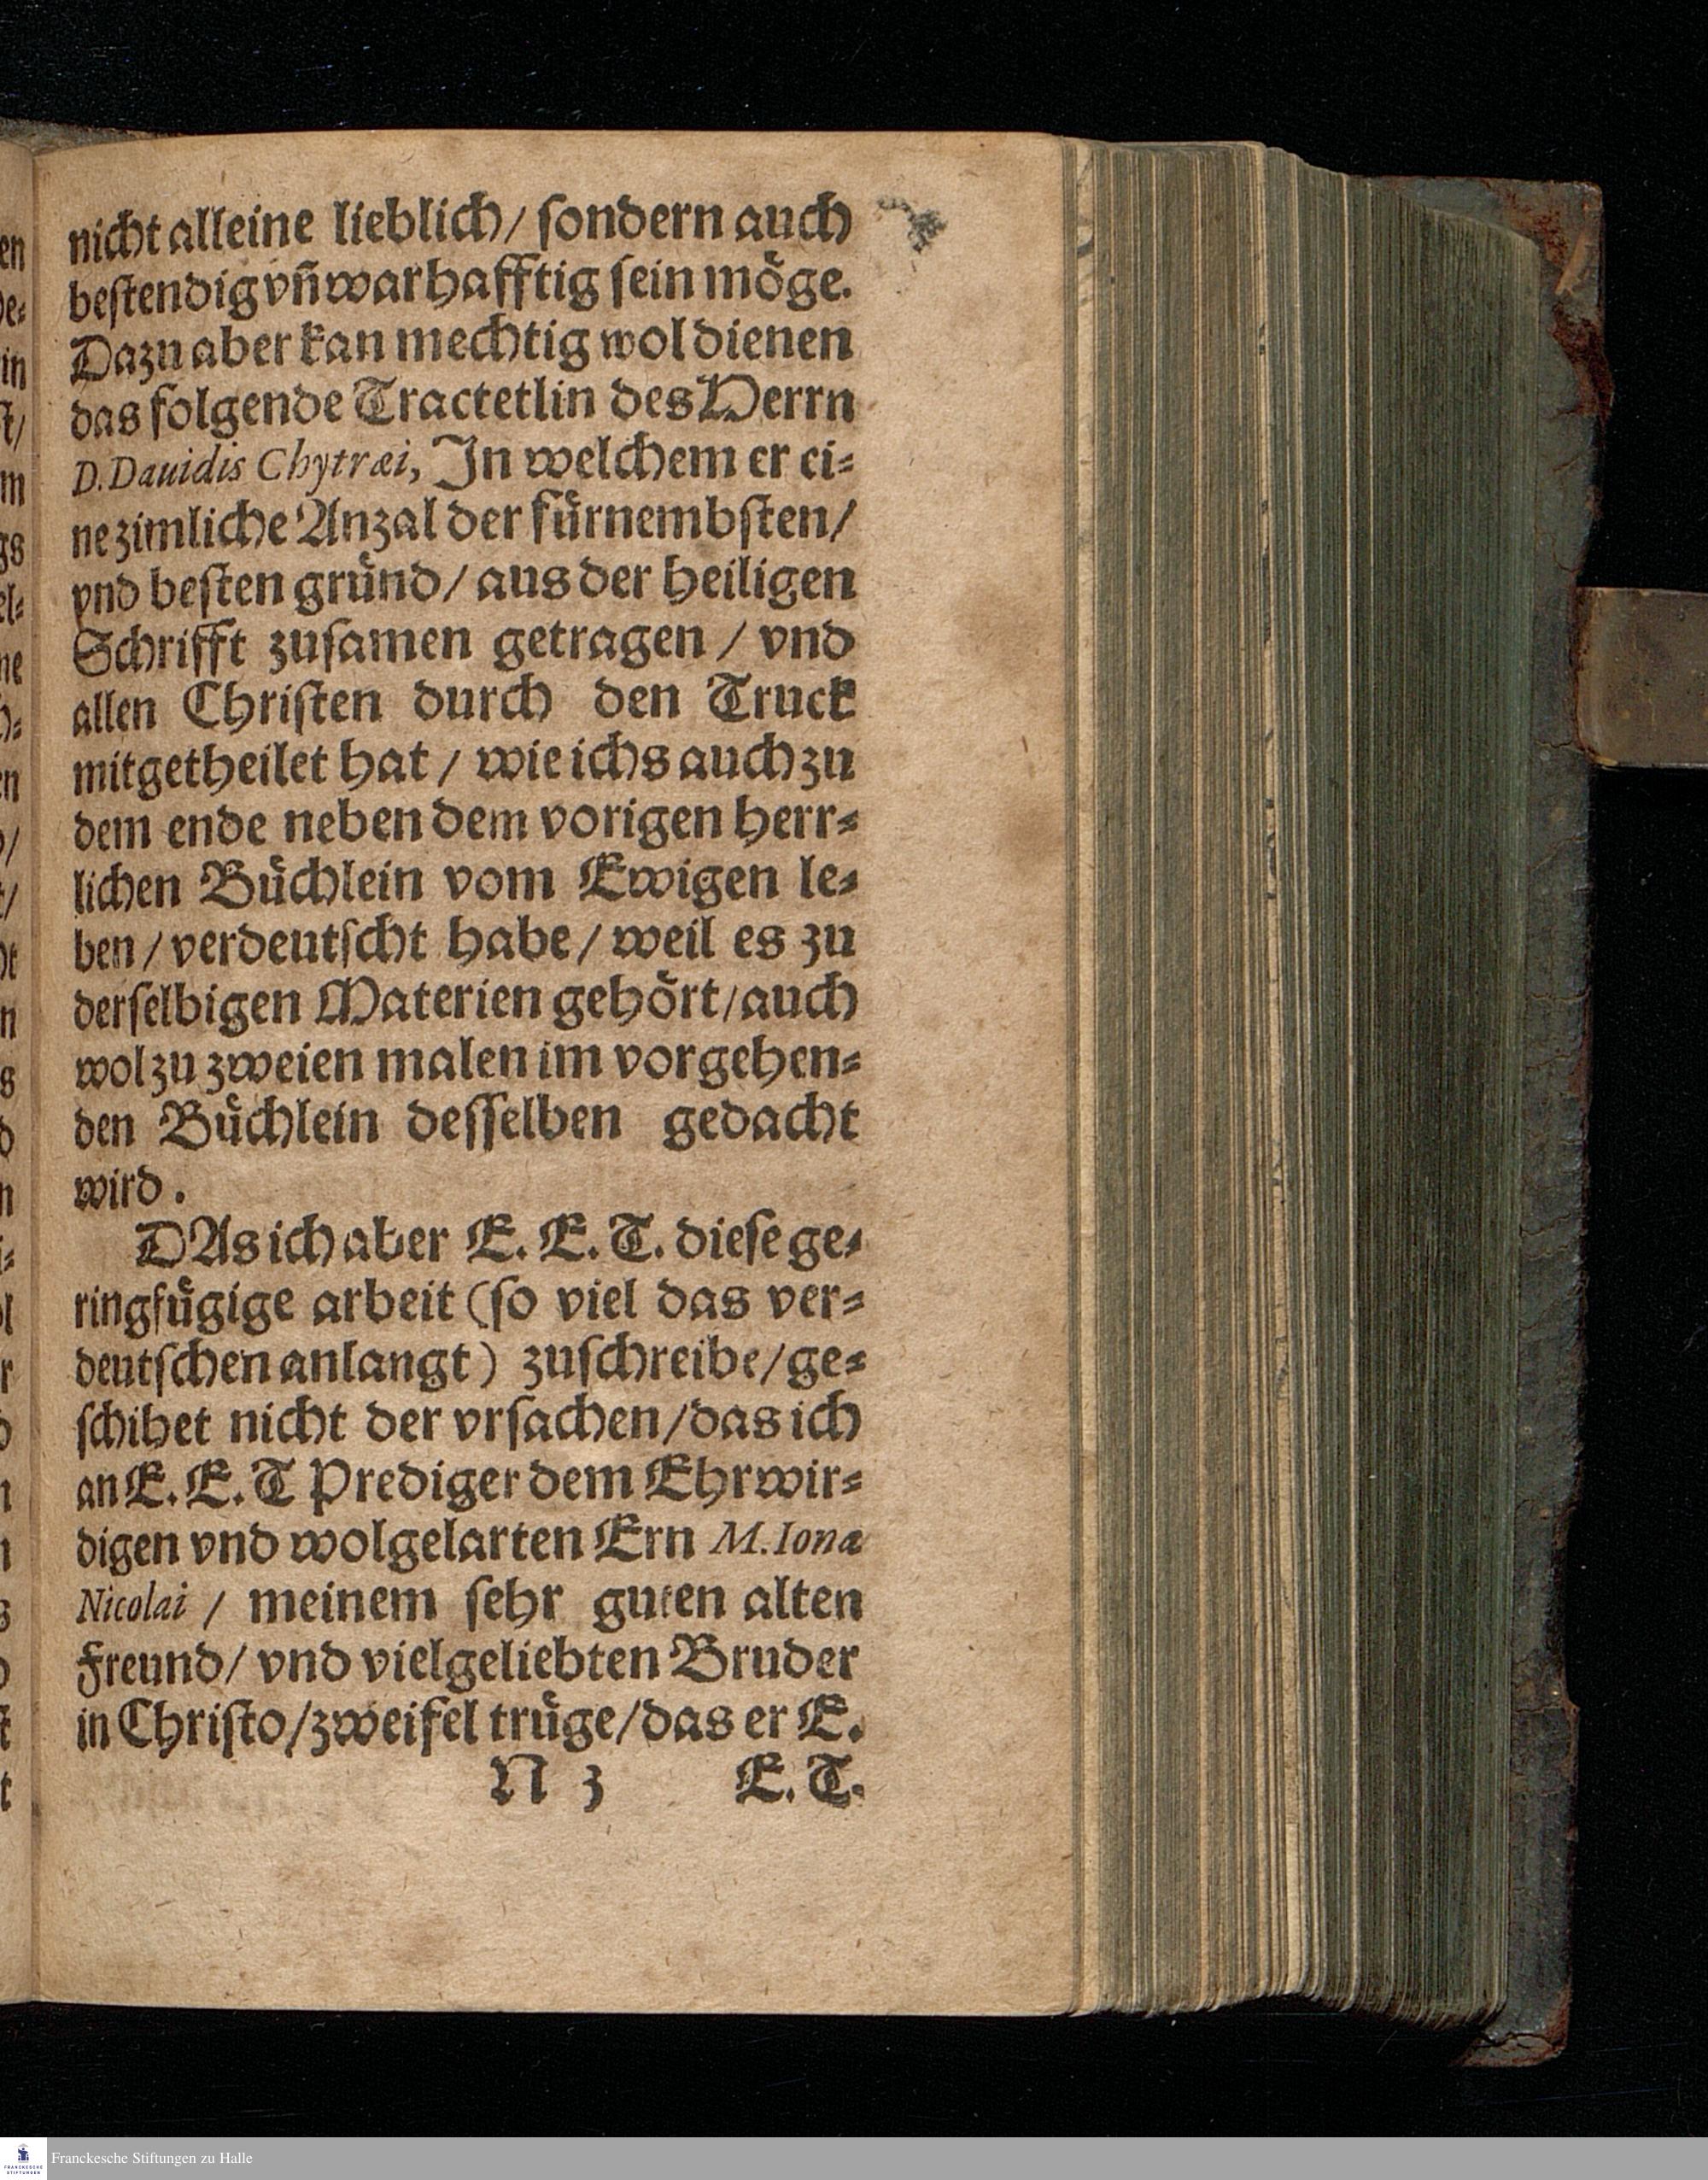 nicht alleine lieblich/ sondern auch
bestendig vñ warhafftig sein möge.
Dazu aber kan mechtig wol dienen
das folgende Tractetlin des Herrn
D. Dauidis Chytræi, In welchem er ei-
ne zimliche Anzal der fürnembsten/
vnd besten gründ/ aus der heiligen
Schrifft zusamen getragen / vnd
allen Christen durch den Truck
mitgetheilet hat / wie ichs auch zu
dem ende neben dem vorigen herr-
lichen Büchlein vom Ewigen le-
ben / verdeutscht habe / weil es zu
derselbigen Materien gehört/ auch
wol zu zweien malen im vorgehen-
den Büchlein desselben gedacht
wird.
DAs ich aber E. E. T. diese ge-
ringfügige arbeit (so viel das ver-
deutschen anlangt) zuschreibe/ ge-
schihet nicht der vrsachen/ das ich
an E. E. T Prediger dem Ehrwir-
digen vnd wolgelarten Ern M. Iona
Nicolai / meinem sehr guten alten
Freund/ vnd vielgeliebten Bruder
in Christo/ zweifel trüge/ das er E.
N 3 E. T.
Franckesche Stiftungen zu Halle